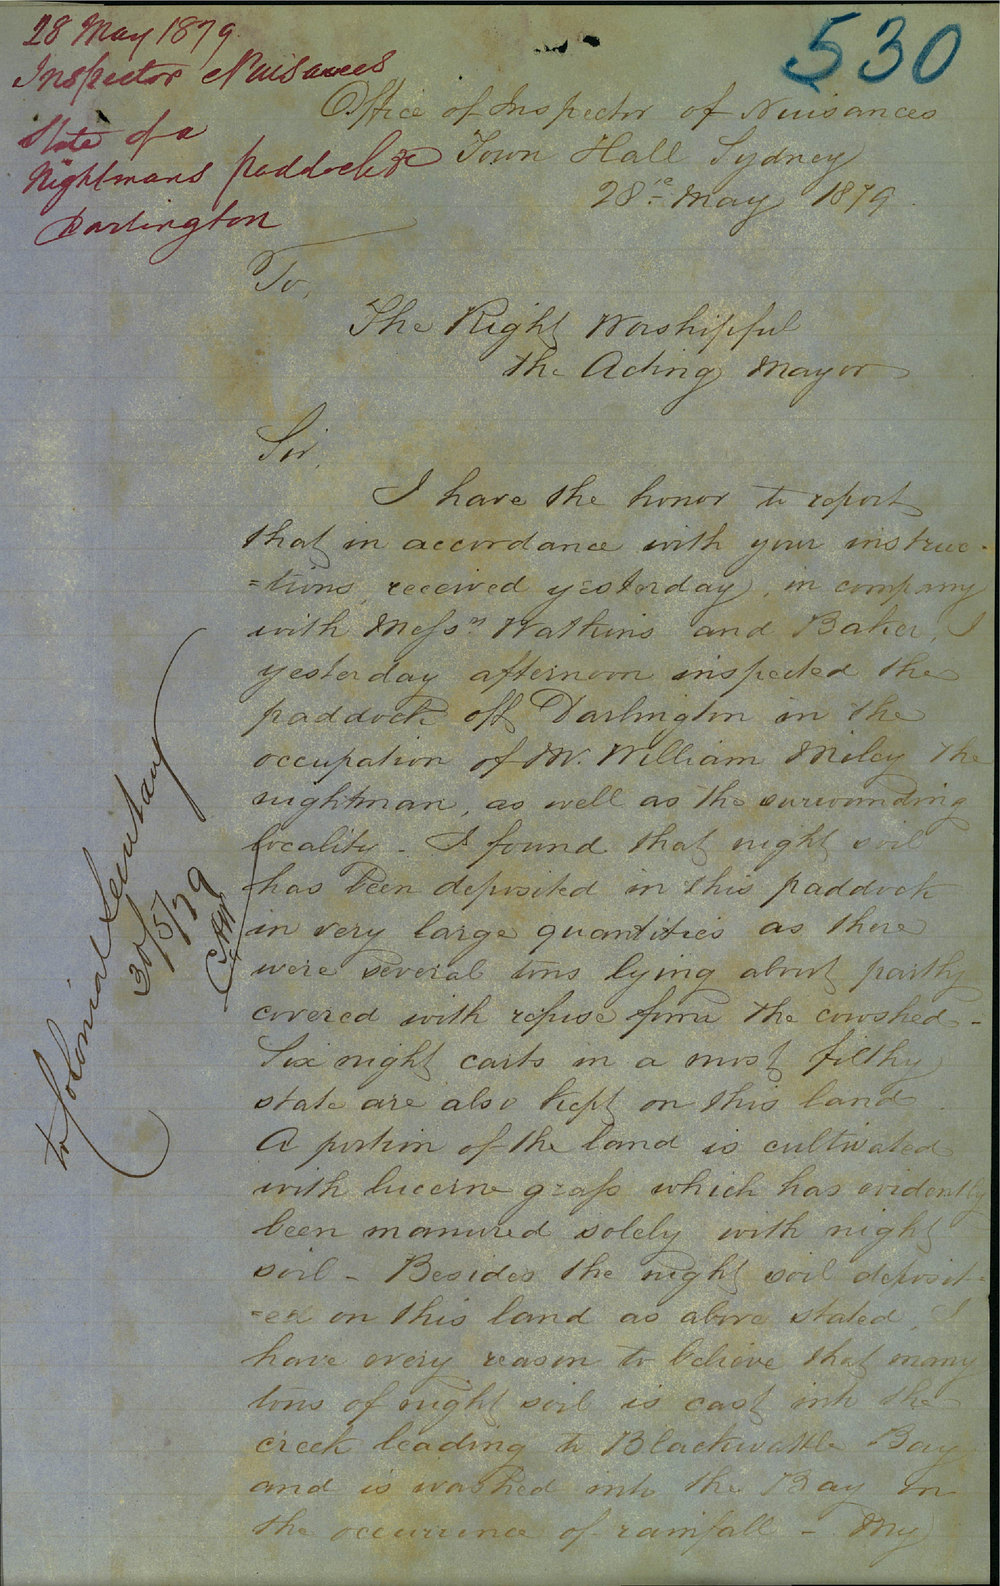 28 May 1879
Inspector Nuisances
State of a
Nightmans paddock &c
Darlington
530
Office of Inspector of Nuisances
Town Hall Sydney
28th May 1879.
To,
The Right Worshipful
the Acting Mayor
Sir,
I have the honor to report
that in accordance with your instruc-
=tions, received yesterday, in company
with Messrs Watkins and Baker, I
yesterday afternoon inspected the
paddock off Darlington in the
occupation of Mr. William Miley the
nightman, as well as the surrounding
locality - I found that night soil
has been deposited in this paddock
in very large quantities as there
were several tons lying about partly
covered with refuse from the cowshed -
Six night carts in a most filthy
state are also kept on this land.
A portion of the land is cultivated
with lucerne grass which has evidently
been manured solely with night
soil - Besides the night soil deposit-
=ed on this land as above stated, I
have every reason to believe that many
tons of night soil is cast into the
creek leading to Blackwattle Bay
and is washed into the Bay on
the occurrence of rainfall - My
to Colonial Secretary
30/5/79